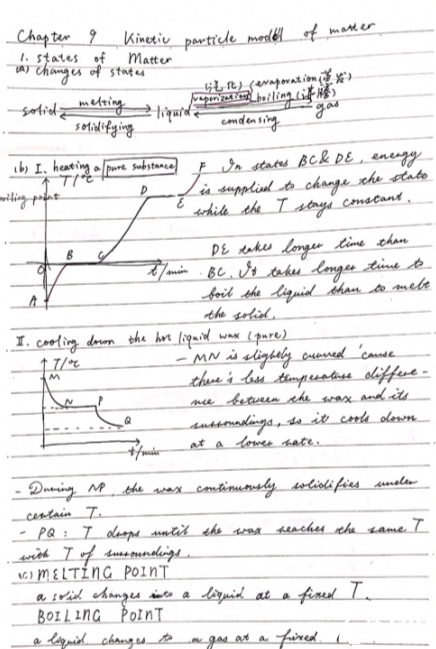 Chapter 9 Kinetic particle model of matter
1. states of Matter
(a) changes of states
(汽化) (evaporation(蒸发)
solid melting liquid vaporization boiling (沸腾) gas
solidifying condensing
(b) I. heating a pure substance
T/°C
boiling point
A B C D E F
O
t/min
In states BC & DE, energy
is supplied to change the state
while the T stays constant.
DE takes longer time than
BC. It takes longer time to
boil the liquid than to melt
the solid.
II. cooling down the hot liquid wax (pure)
T/°C
M N P Q
t/min
- MN is slightly curved 'cause
there's less temperature differe-
nce between the wax and its
surroundings, so it cools down
at a lower rate.
- During NP the wax continuously solidifies under
certain T.
- PQ : T drops until the wax reaches the same T
with T of surroundings.
(c) MELTING POINT
a solid changes into a liquid at a fixed T.
BOILING POINT
a liquid changes to a gas at a fixed